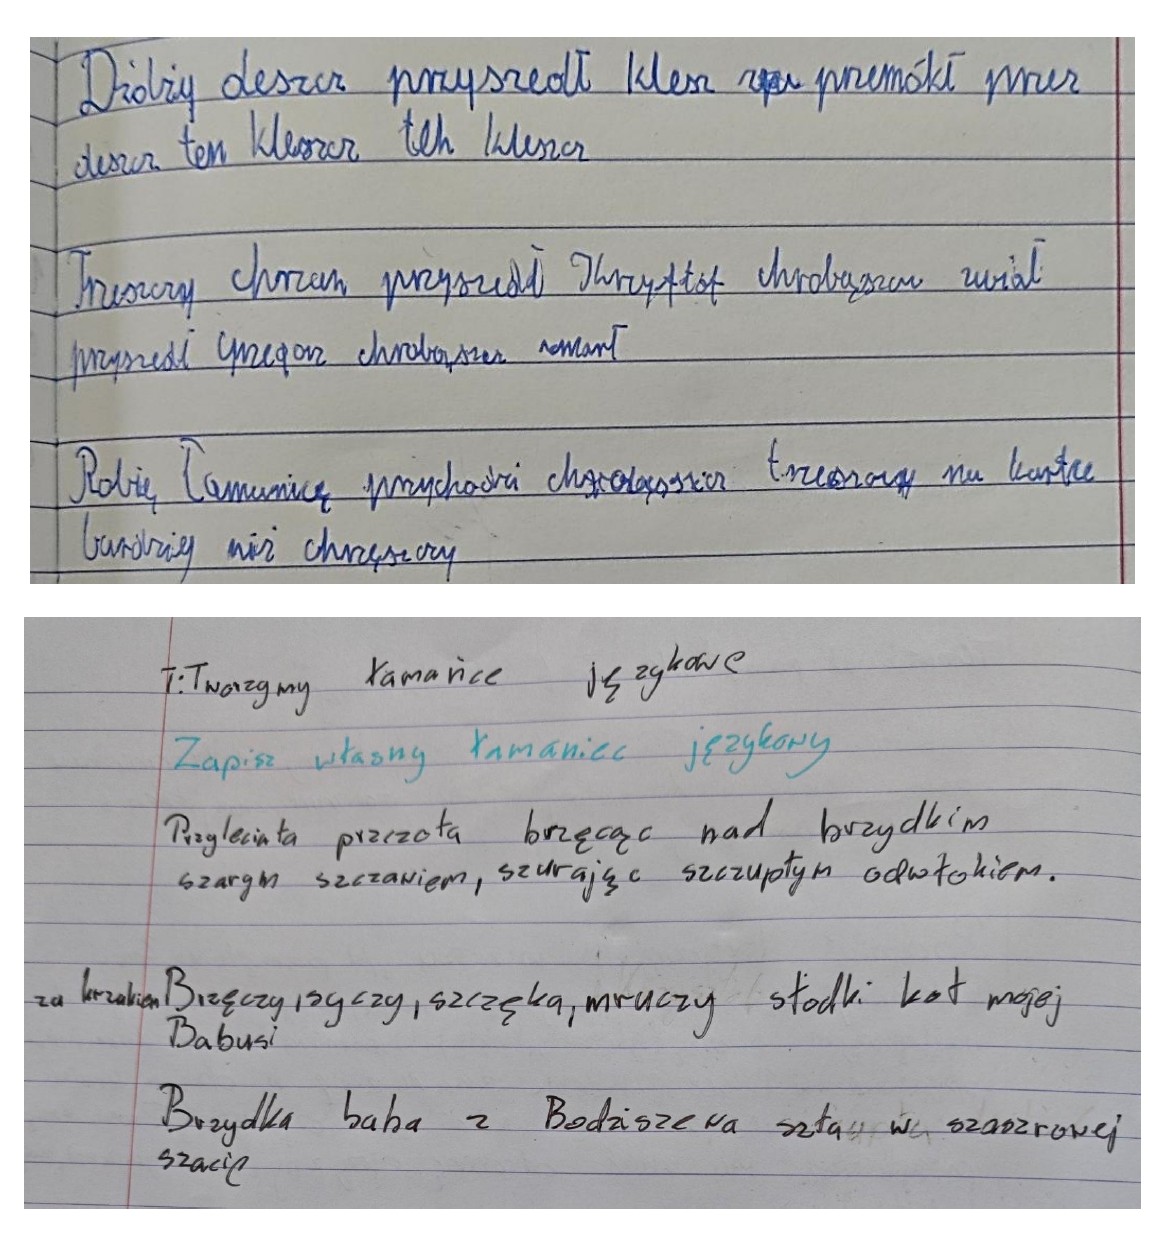 Dżdży deszcz przyszedł klesz przemókł przez
deszcz ten kleszcz ten kleszcz
Trzeszczy chrzan przyszedł Khrzysztof chrobąszcz zwiał
przyszedł Grzegorz chrobąszcz zomarł
Robię łamanicę przychodzi chrobąszcz trzeszczy na kartce
bardziej niż chrzęszczy
T: Tworzymy łamańce językowe
Zapisz własny łamaniec językowy
Przyleciała przczoła brzęcąc nad brzydkim
szarym szczawiem, szurając szczupłym odwłokiem.
za krzakiem Brzęczy, syczy, szczęka, mruczy słodki kot mojej
Babusi
Brzydka baba z Bodziszewa szła w szaszrowej
szacie